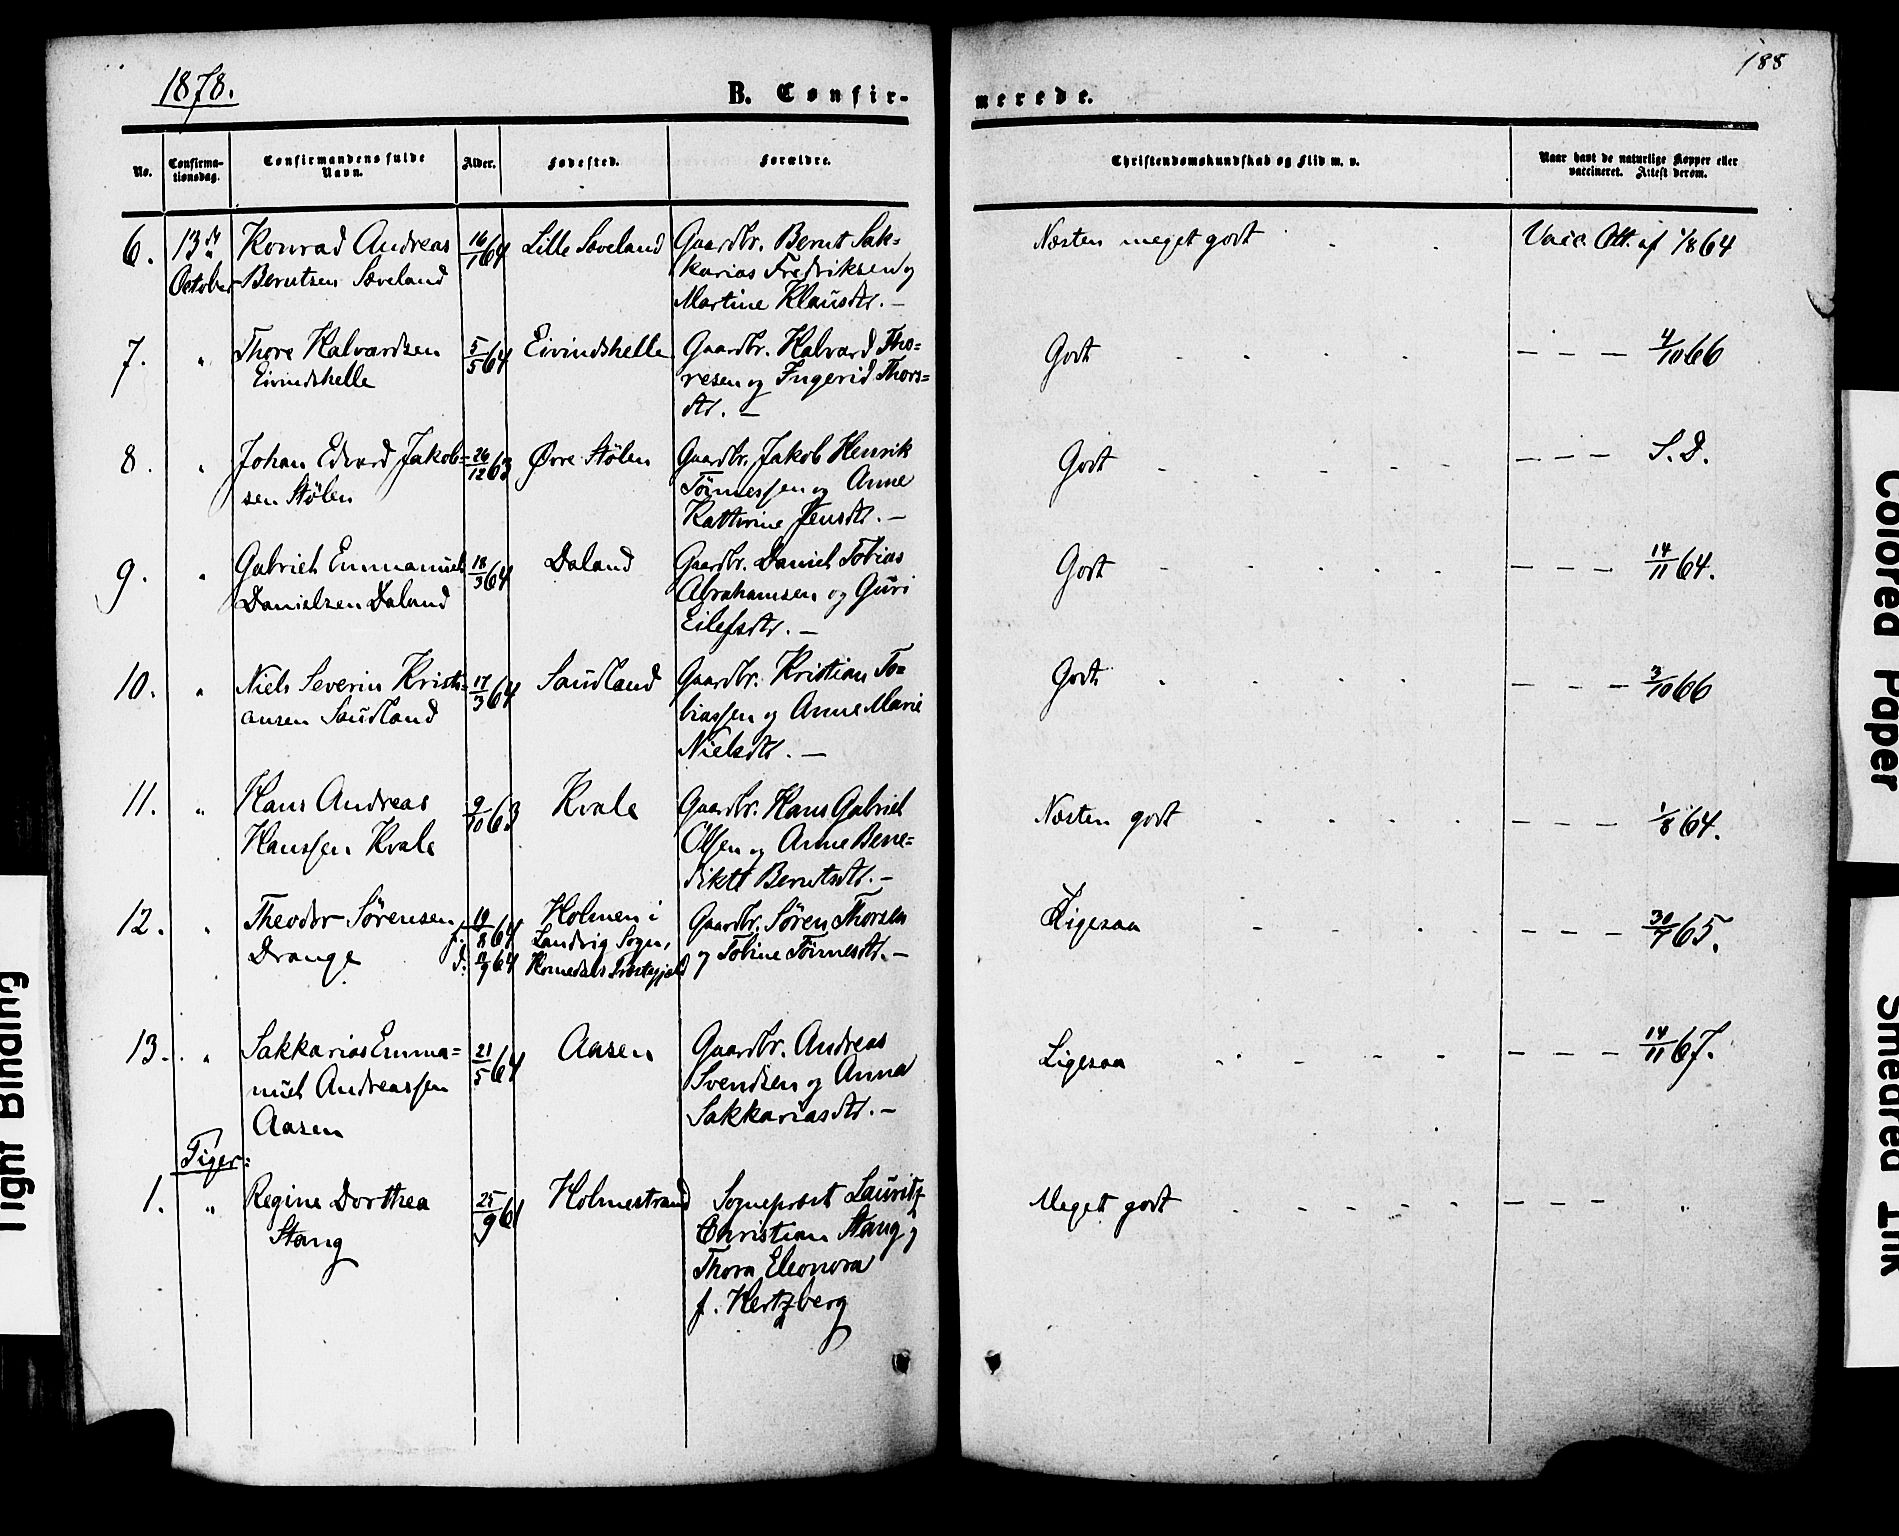 1878.
188
B. Confir-
merede.
No.
Confirma-
tionsdag.
Confirmandens fulde
Navn.
Alder.
Fødested.
Forældre.
Christendomskundskab og Flid m. v.
Naar havt de naturlige Kopper eller
vaccineret. Attest derom.
6. 13de Konrad Andreas 16/1 64 Lille Sæveland Gaardbr. Bernt Sak= Næsten meget godt Vacc. Att. af 1/8 64
October Berntsen Sæveland karias Fredriksen og
Martine Klausdtr. —
7. " Thore Halvardsen 5/5 64 Eivindshelle Gaardbr. Halvard Tho= Godt — — — 4/10 66
Eivindshelle resen og Ingerid Thors=
dtr. —
8. " Johan Edvard Jakob= 26/12 63 Øvre Stølen Gaardbr. Jakob Henrik Godt — — — S. D.
sen Stølen Tønnessen og Anne
Kathrine Jensdtr. —
9. " Gabriel Emmanuel 18/3 64 Daland Gaardbr. Daniel Tobias Godt — — — 14/11 64.
Danielsen Daland Abrahamsen og Guri
Eilefsdtr. —
10. " Niels Severin Kristi= 17/3 64 Saudland Gaardbr. Kristian To= Godt — — — 3/10 66
ansen Saudland biassen og Anne Marie
Nielsdtr. —
11. " Hans Andreas 9/10 63 Kvale Gaardbr. Hans Gabriel Næsten godt — — — 1/8 64.
Hanssen Kvale Olsen og Anne Bene=
dikte Berntsdtr. —
12. " Theodor Sørensen f. 19/8 64 Holmen i Gaardbr. Søren Thorsen Ligesaa — — — 30/7 65.
Drange d. /9 64 Landvig Sogn, og Tobine Tønnesdtr. —
Homedals Præstegjeld
13. " Sakkarias Emma= 21/5 64 Aasen Gaardbr. Andreas Ligesaa — — — 14/11 67.
nuel Andreassen Svendsen og Anna
Aasen Sakkariasdtr. —
Piger:
1. " Regine Dorthea 25/9 61 Holmestrand Sogneprest Lauritz Meget godt — — — "
Stang Christian Stang og
Thora Eleonora
f. Hertzberg
Tight Binding
Colored Paper
Smeared Ink